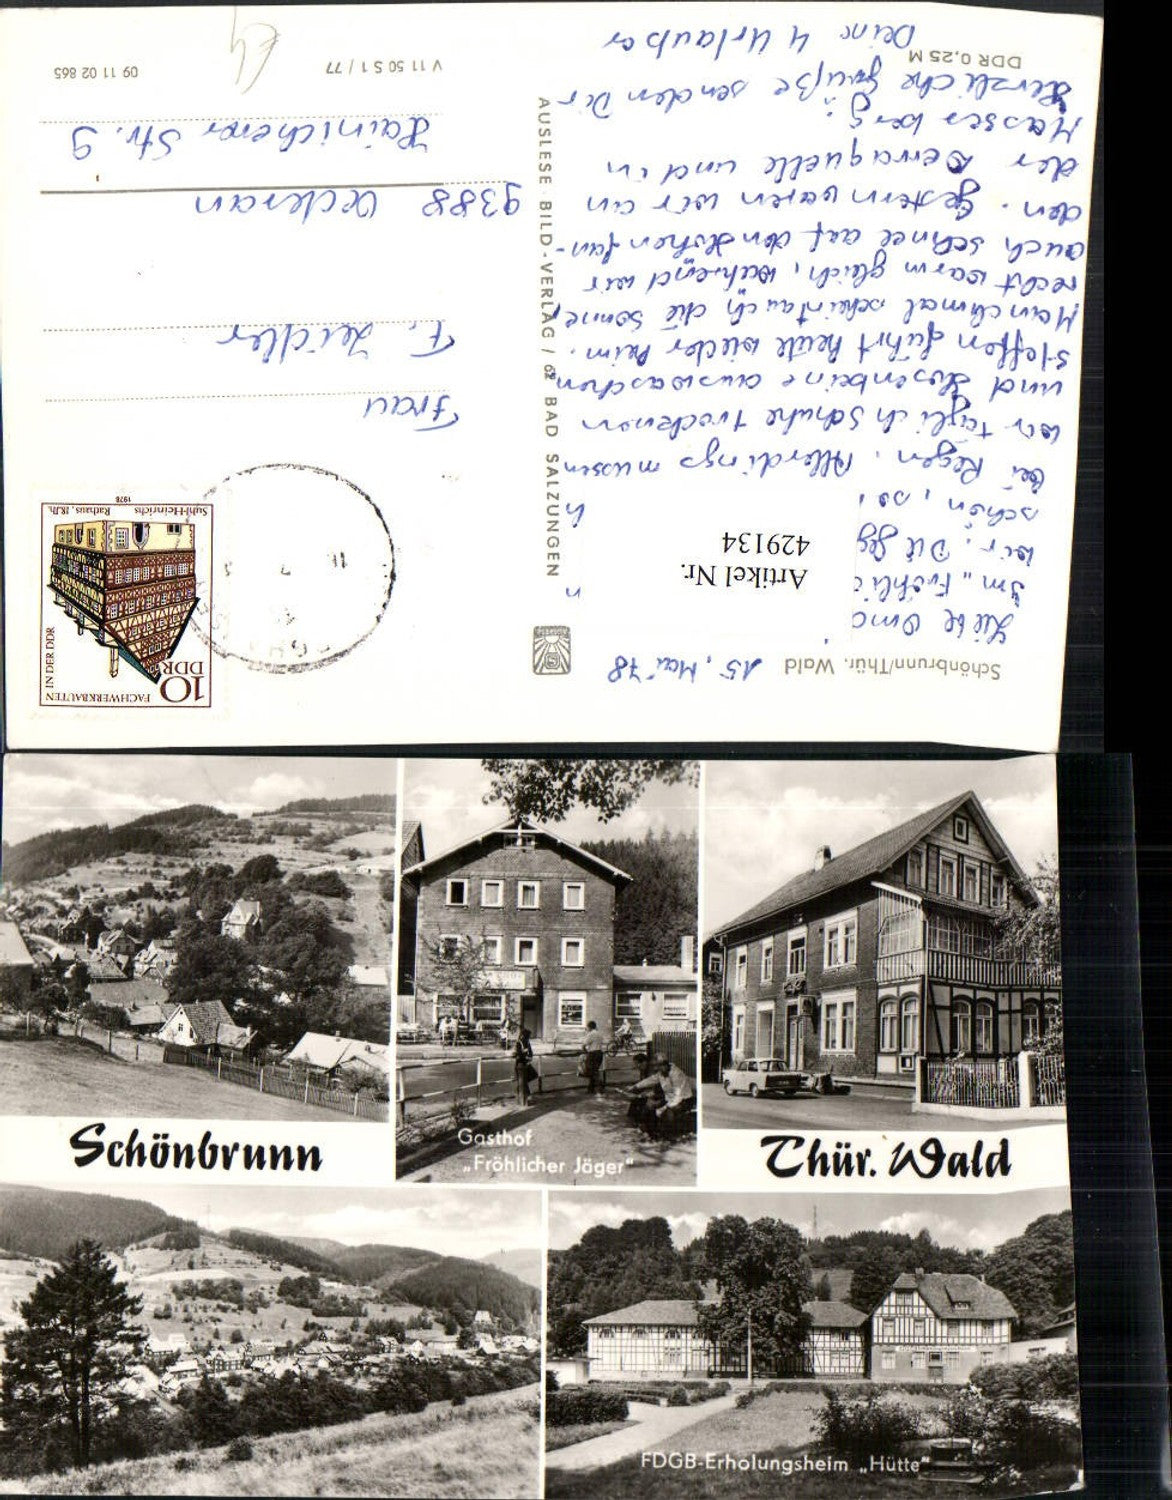 Schönbrunn/Thür. Wald
15. Mai 78
Liebe Oma
Im „Fröhlic
wir. Die Geg
schön, so
bei Regen. Allerdings müssen
wir täglich Schuhe trocknen
und Hosenbeine auswaschen.
Steffen fährt heute wieder heim.
Manchmal scheint auch die Sonne,
recht warm gleich, während wir
auch schnel auf den Höhen fan-
den. Gestern waren wir an
der Werraquelle und in
Masserberg.
Herzliche Grüße senden Dir
Deine 4 Urlauber
DDR 0,25 M
Artikel Nr.
429134
AUSLESE BILD-VERLAG / 62 BAD SALZUNGEN
10
DDR
FACHWERKBAUTEN
IN DER DDR
Suhl-Heinrichs
Rathaus, 18. Jh.
1978
Frau
F. Zeidler
9388 Oederan
Hainichener Str. 9
V 11 50 S 1 / 77
09 11 02 865
Schönbrunn
Gasthof
„Fröhlicher Jäger“
Thür. Wald
FDGB-Erholungsheim „Hütte“